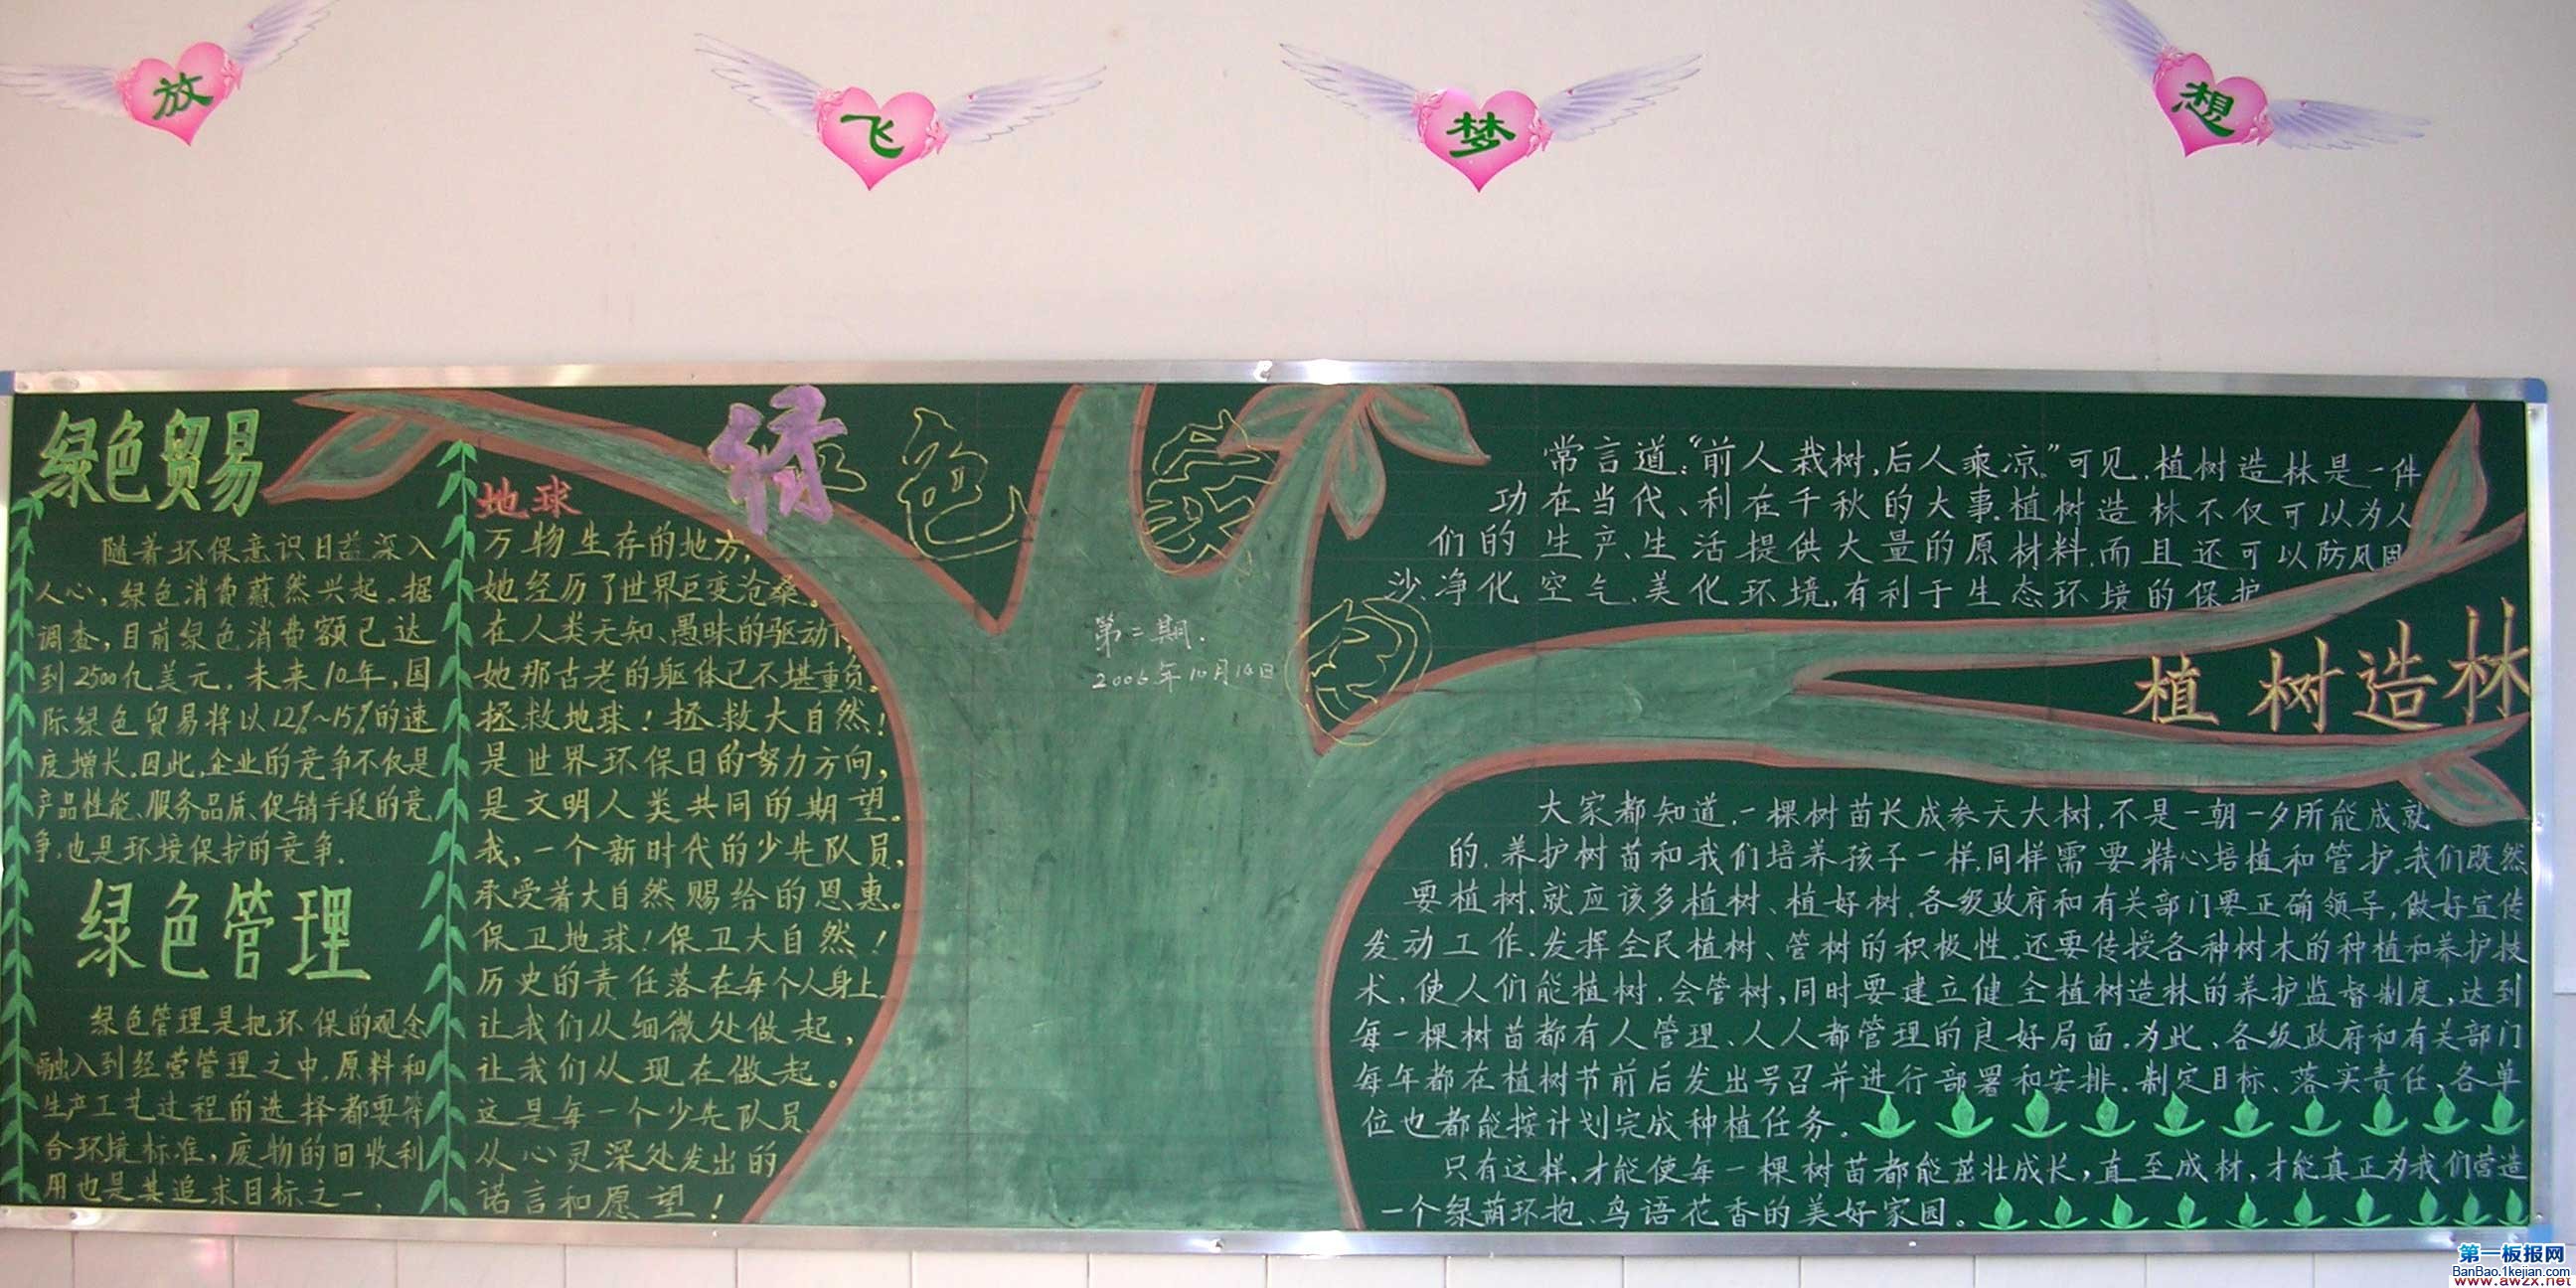 放 飞 梦 想
绿色贸易
随着环保意识日益深入
人心，绿色消费蔚然兴起。据
调查，目前绿色消费额已达
到2500亿美元。未来10年，国
际绿色贸易将以12%~15%的速
度增长。因此，企业的竞争不仅是
产品性能、服务品质、促销手段的竞
争，也是环境保护的竞争。
绿色管理
绿色管理是把环保的观念
融入到经营管理之中，原料和
生产工艺过程的选择都要符
合环境标准，废物的回收利
用也是其追求目标之一，
地球
万物生存的地方，
她经历了世界巨变沧桑。
在人类无知、愚昧的驱动下，
她那古老的躯体已不堪重负。
拯救地球！拯救大自然！
是世界环保日的努力方向，
是文明人类共同的期望。
我，一个新时代的少先队员，
承受着大自然赐给的恩惠。
保卫地球！保卫大自然！
历史的责任落在每个人身上。
让我们从细微处做起，
让我们从现在做起。
这是每一个少先队员
从心灵深处发出的
诺言和愿望！
绿色家园
第二期.
2006年10月14日
常言道：“前人栽树，后人乘凉。”可见，植树造林是一件
功在当代、利在千秋的大事。植树造林不仅可以为人
们的生产、生活提供大量的原材料，而且还可以防风固
沙、净化空气、美化环境，有利于生态环境的保护
植树造林
大家都知道，一棵树苗长成参天大树，不是一朝一夕所能成就
的，养护树苗和我们培养孩子一样，同样需要精心培植和管护。我们既然
要植树，就应该多植树、植好树。各级政府和有关部门要正确领导，做好宣传
发动工作，发挥全民植树、管树的积极性。还要传授各种树木的种植和养护技
术，使人们能植树，会管树，同时要建立健全植树造林的养护监督制度，达到
每一棵树苗都有人管理、人人都管理的良好局面。为此、各级政府和有关部门
每年都在植树节前后发出号召并进行部署和安排，制定目标、落实责任，各单
位也都能按计划完成种植任务。
只有这样，才能使每一棵树苗都能茁壮成长，直至成材，才能真正为我们营造
一个绿荫环抱、鸟语花香的美好家园。
第一板报网
BanBao.1kejian.com
www.awzx.net